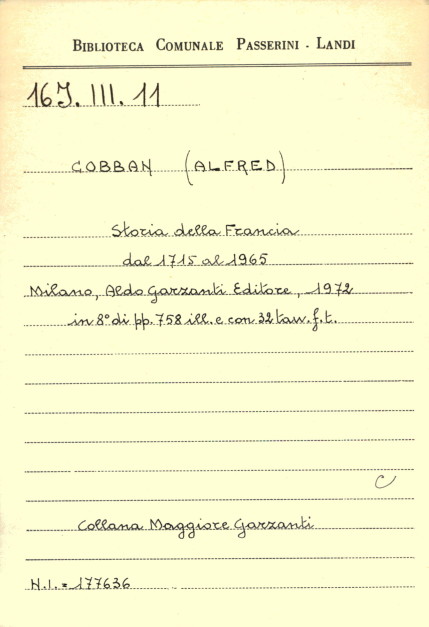 BIBLIOTECA COMUNALE PASSERINI - LANDI
16 J. III. 11
COBBAN (ALFRED)
Storia della Francia
dal 1715 al 1965
Milano, Aldo Garzanti Editore, 1972
in 8° di pp. 758 ill. e con 32 tav. f. t.
C
Collana Maggiore Garzanti
N.I. = 177636